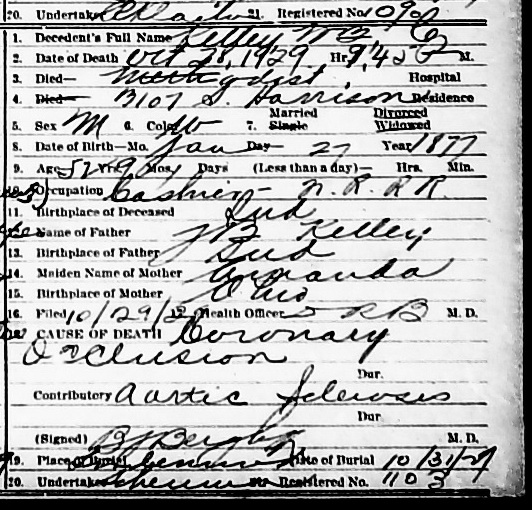 20. Undertaker 21. Registered No. 1090
1. Decedent's Full Name Kelley Wm E
2. Date of Death Oct 28, 1929 Hr. 9:45 P. M.
3. Died— Methodist Hospital
4. Died— 3107 S. Harrison Residence
Married Divorced
5. Sex M 6. Color W 7. Single Widowed
8. Date of Birth—Mo. Jan Day 27 Year 1877
9. Age 52 Yrs. 9 Mos. Days (Less than a day)— Hrs. Min.
10. Occupation Cashier - N. R. R R.
11. Birthplace of Deceased Ind
12. Name of Father J B Kelley
13. Birthplace of Father Ind
14. Maiden Name of Mother Amanda
15. Birthplace of Mother Ohio
16. Filed 10/29/29 17. Health Officer R B M. D.
18. CAUSE OF DEATH Coronary
Occlusion
Dur.
Contributory Aortic Sclerosis
Dur.
(Signed) M. D.
19. Place of Burial Date of Burial 10/31/29
20. Undertaker 21. Registered No. 1103